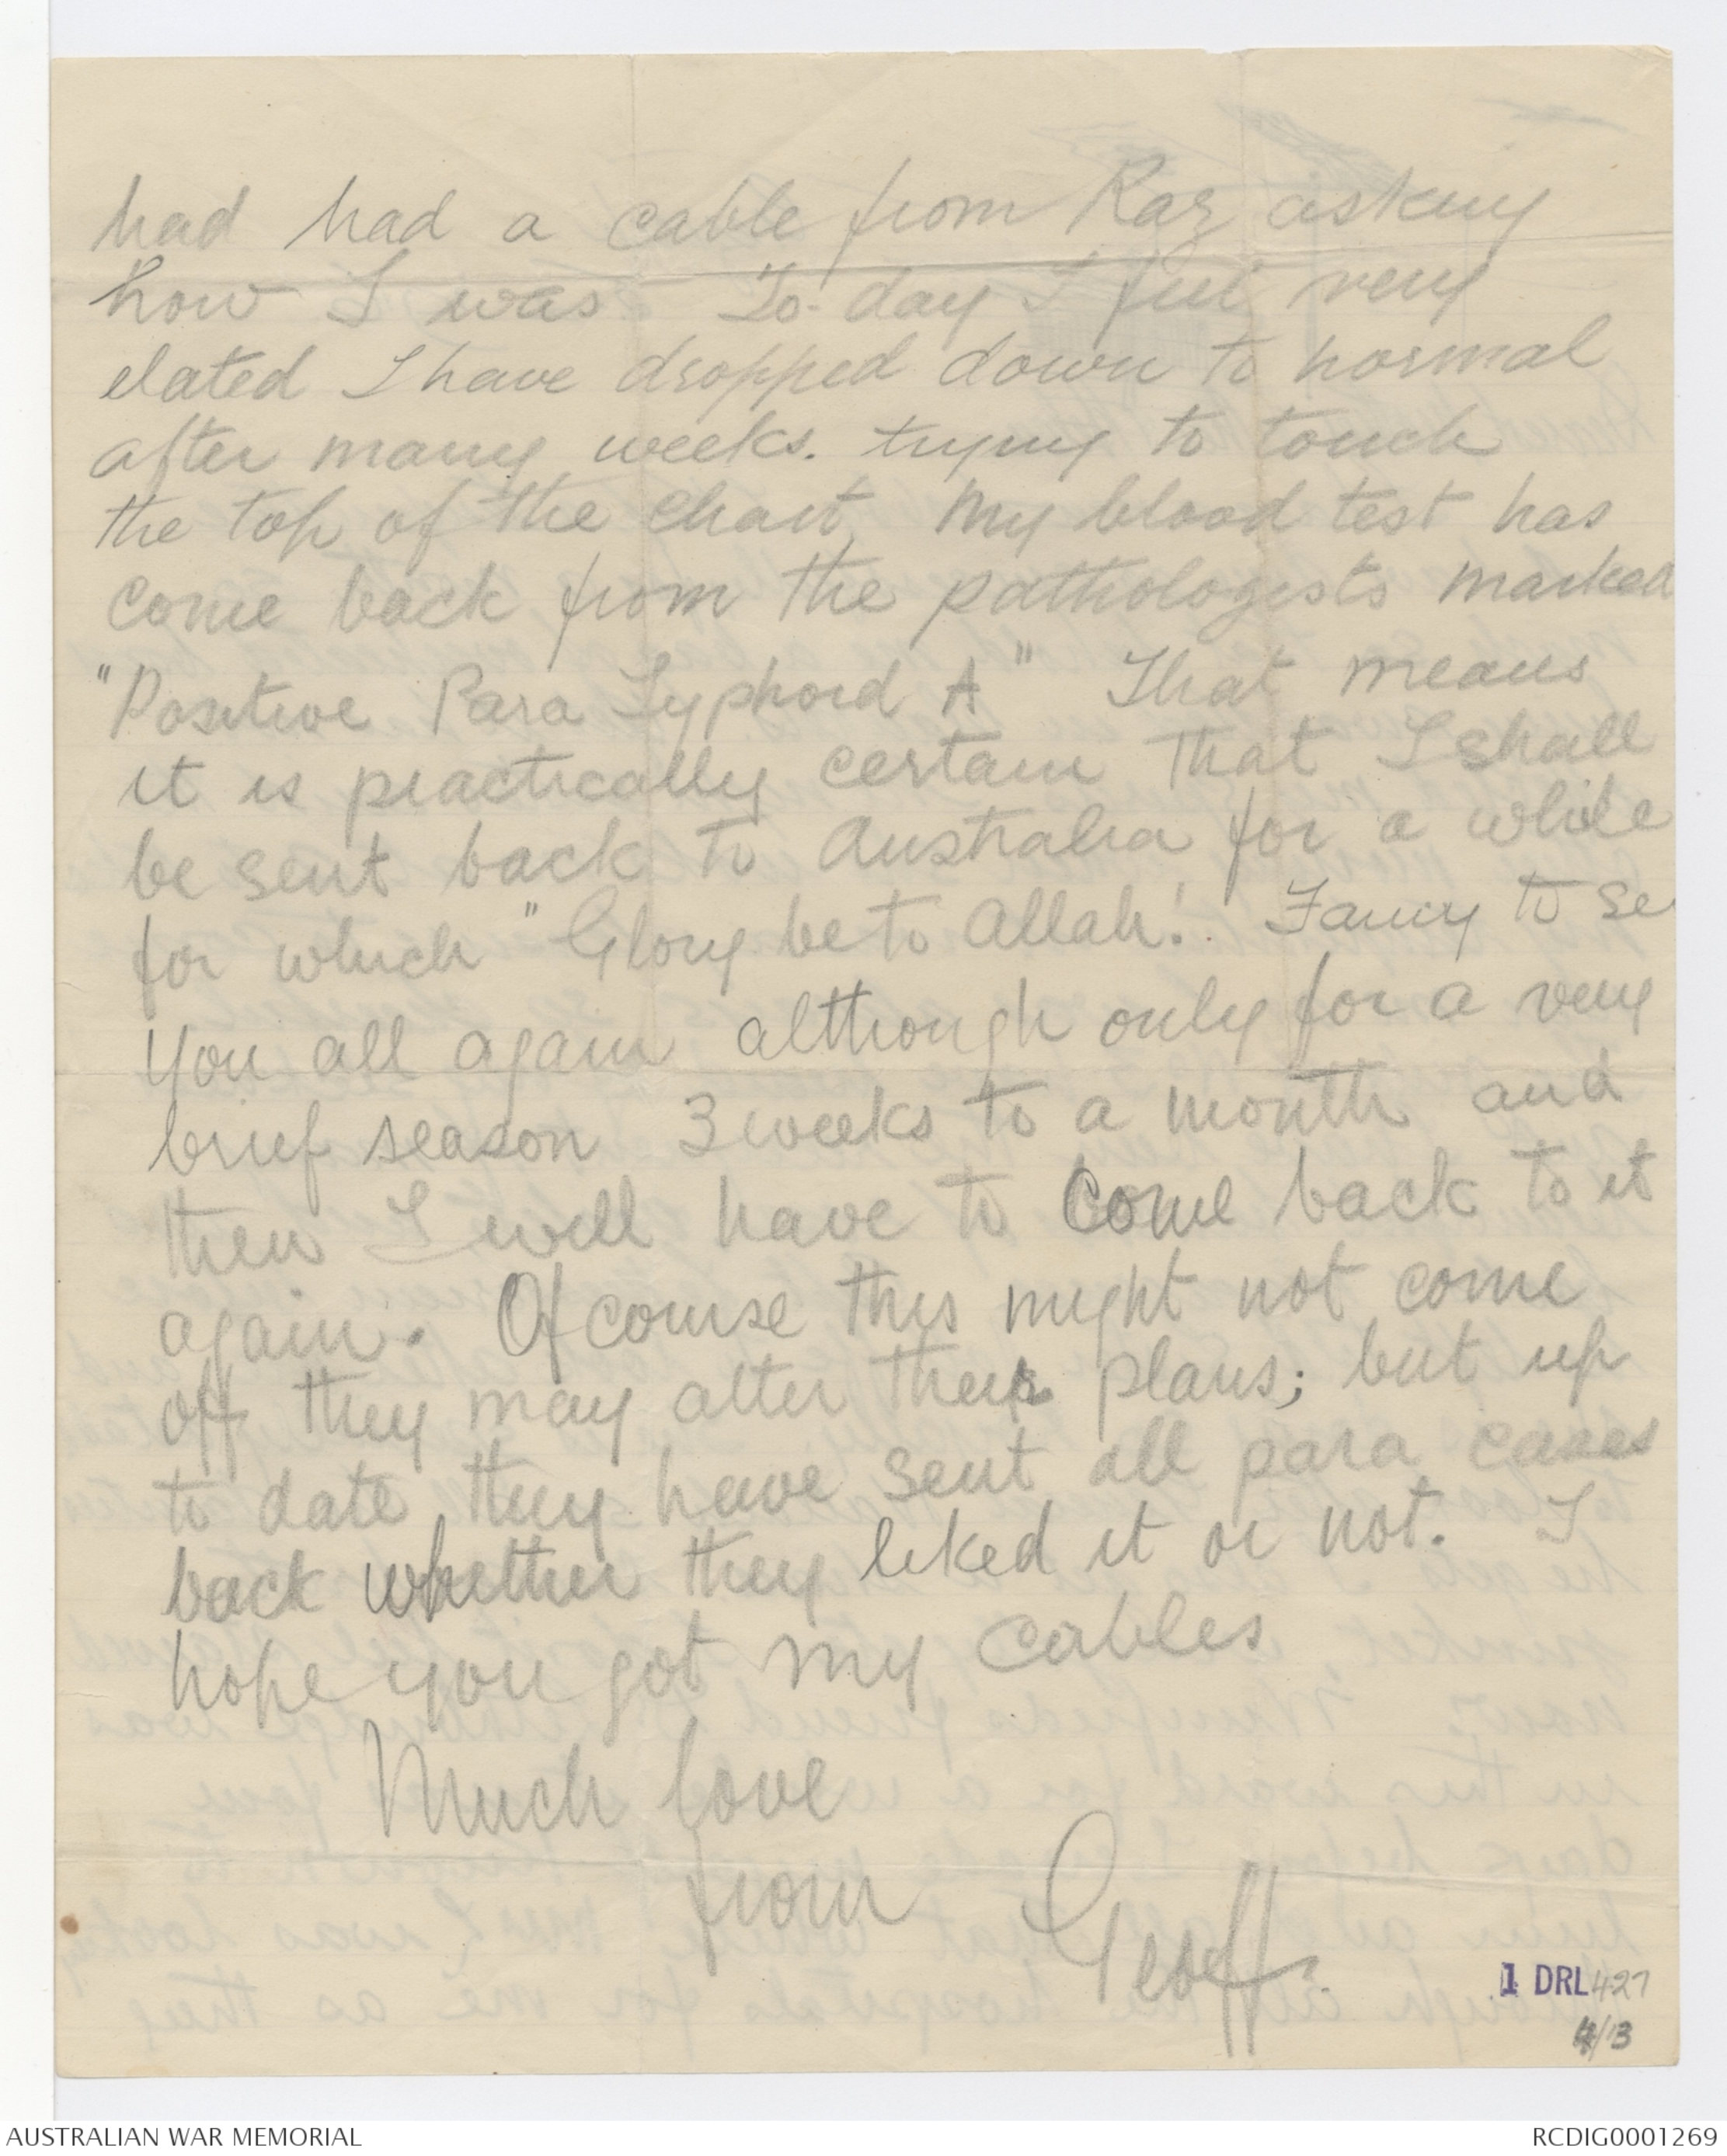 had had a cable from Raz asking
how I was To-day I feel very
elated I have dropped down to normal
after many weeks. trying to touch
the top of the chart, My blood test has
come back from the pathologists marked
"Positive Para Typhoid A" That means
it is practically certain that I shall
be sent back to Australia for a while
for which "Glory be to Allah! Fancy to se
you all again although only for a very
brief season 3 weeks to a month and
then I will have to come back to it
again. Of course this might not come
off they may alter their plans; but up
to date they have sent all para cases
back whether they liked it or not. I
hope you got my cables
Much love
from Geoff.
1 DRL 427
4/13
AUSTRALIAN WAR MEMORIAL
RCDIG0001269